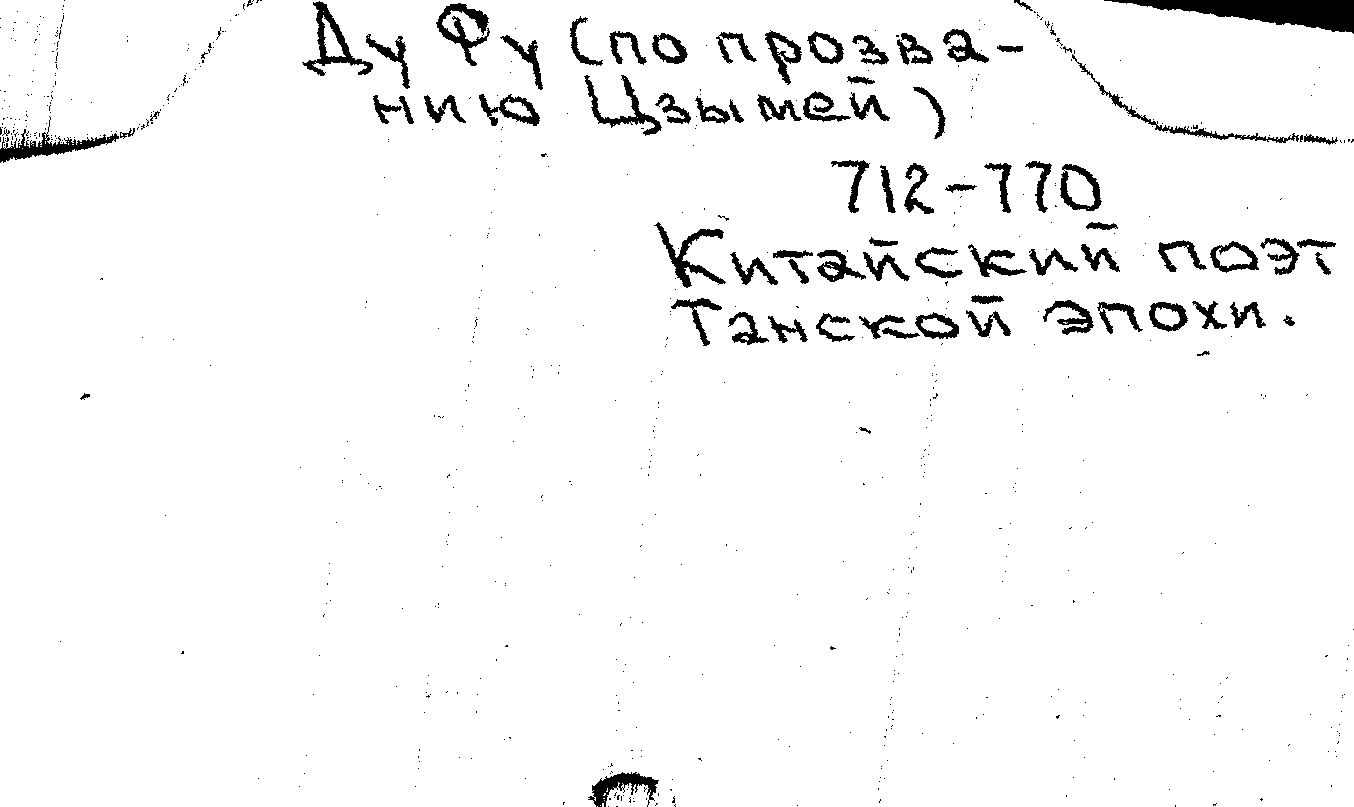 Ду Фу (по прозва-
нию Цзымей)
712-770
Китайский поэт
Танской эпохи.